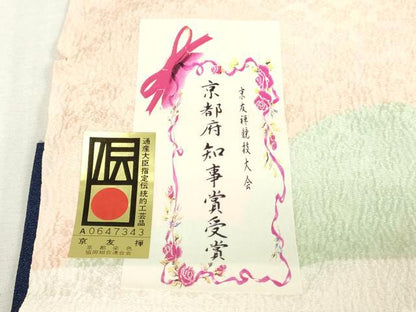 京友禅競技大会
京都府知事賞受賞
伝
通産大臣指定伝統的工芸品
A0647343
京友禅
京都染色
協同組合連合会